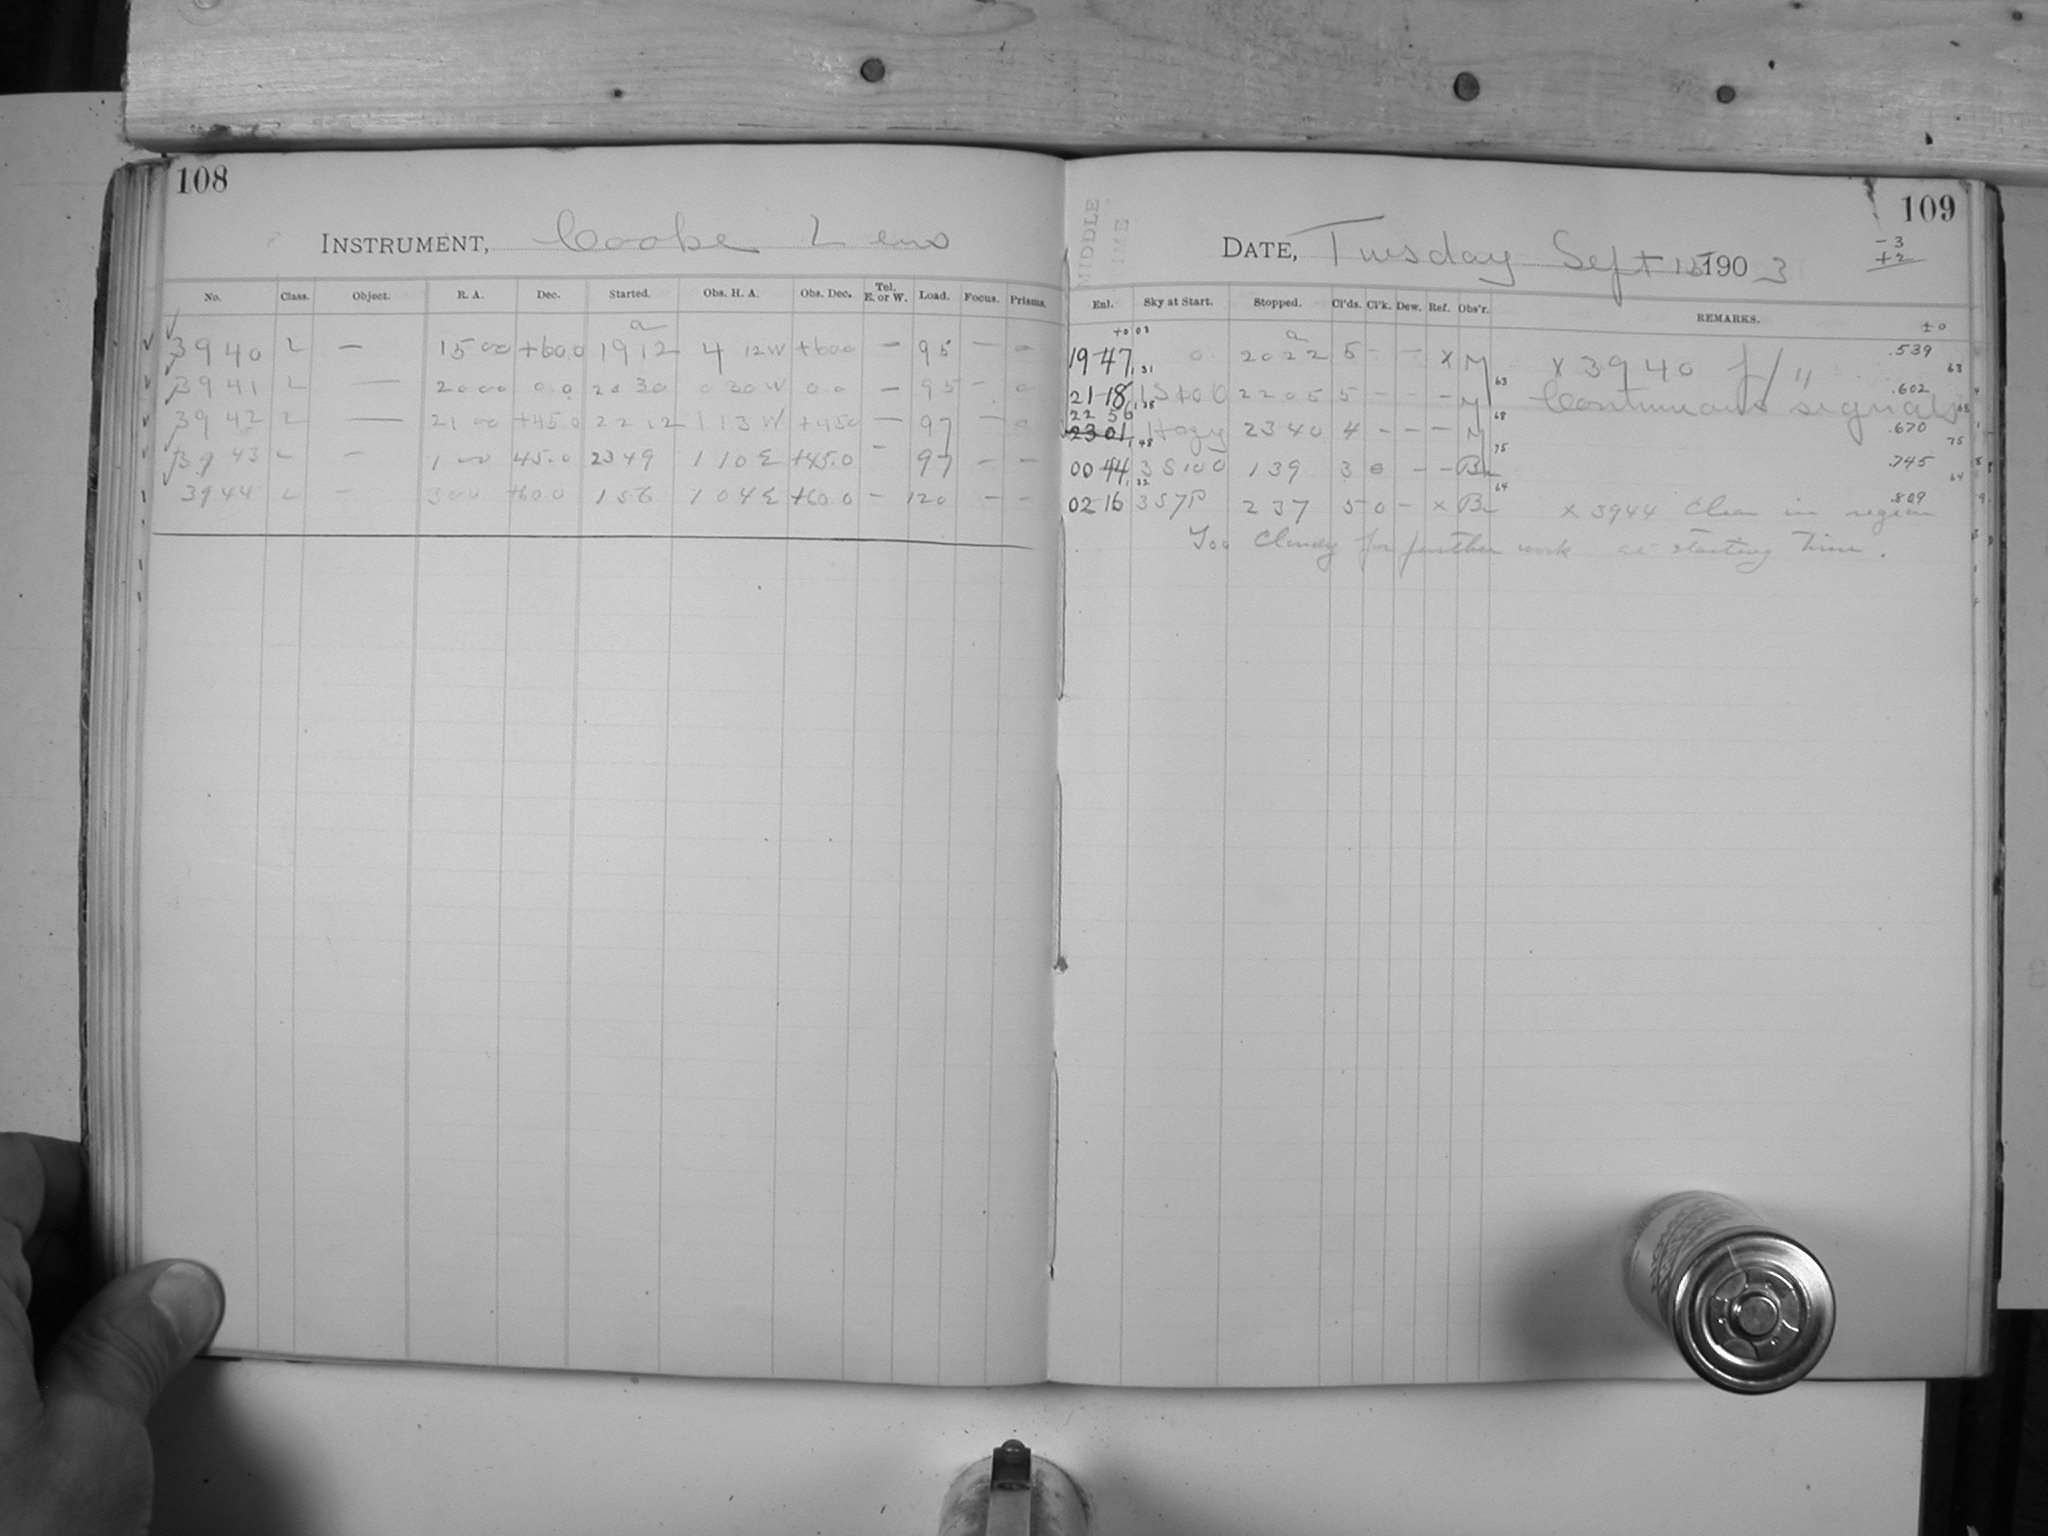 108
INSTRUMENT, Cooke Lens
No. Class. Object. R. A. Dec. Started. Obs. H. A. Obs. Dec. Tel. E. or W. Load. Focus. Prisms.
a
3940 L — 15 00 +60.0 19 12 4 12 W +60.0 — 95 — 0
3941 L — 20 00 0.0 20 30 0 30 W 0.0 — 95 — 0
3942 L — 21 00 +45.0 22 12 1 13 W +45.0 — 97 — 0
3943 L — 1 00 45.0 23 49 1 10 E +45.0 — 97 — —
3944 L — 3 00 +60.0 1 56 1 04 E +60.0 — 120 — —
MIDDLE TIME
109
DATE, Tuesday Sept 15 1903
-3
+2
Enl. Sky at Start. Stopped. Cl'ds. Cl'k. Dew. Ref. Obs'r. REMARKS.
+0 03 a ±0
19 47 0 20 22 5 — — × M × 3940 f/" .539
1,31 63 63
21 18 1 S to 0 22 05 5 — — — M Continuous signals .602
1,38 68 68
22 56
23 01 Hazy 23 40 4 — — — M .670
1,48 75 75
00 44 3 S 10 0 1 39 3 0 — — Br .745
1,32 64 64
02 16 3 S 7 P 2 37 5 0 — × Br × 3944 Clear in region .809
Too Cloudy for further work at starting time.